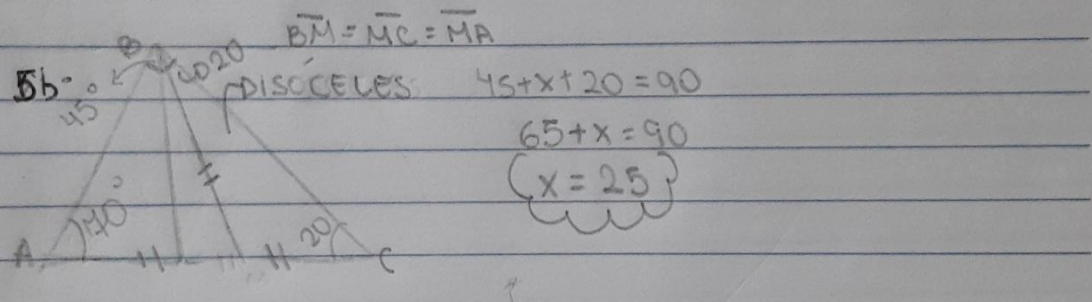 BM = MC = MA
5b.
B
20
20
45°
DISÓCELES
45+x+20=90
65+x=90
x = 25
70°
20
A
C